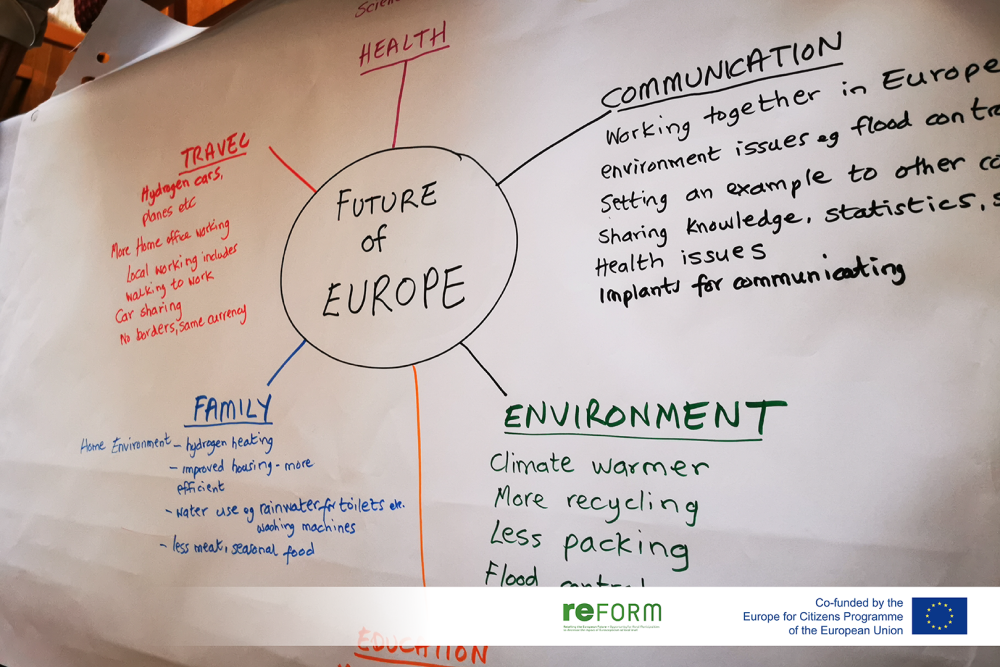 HEALTH
COMMUNICATION
Working together in Europe
environment issues eg flood
Setting an example to other
Sharing knowledge, statistics,
Health issues
Implants for communicating
TRAVEL
Hydrogen cars,
planes etc
More Home office working
Local working includes
walking to work
Car sharing
No borders, same currency
FUTURE
of
EUROPE
FAMILY
Home Environment - hydrogen heating
- improved housing - more
efficient
- water use eg rainwater for toilets etc.
washing machines
- less meat, seasonal food
ENVIRONMENT
Climate warmer
More recycling
Less packing
Flood control
EDUCATION
reFORM
Co-funded by the
Europe for Citizens Programme
of the European Union